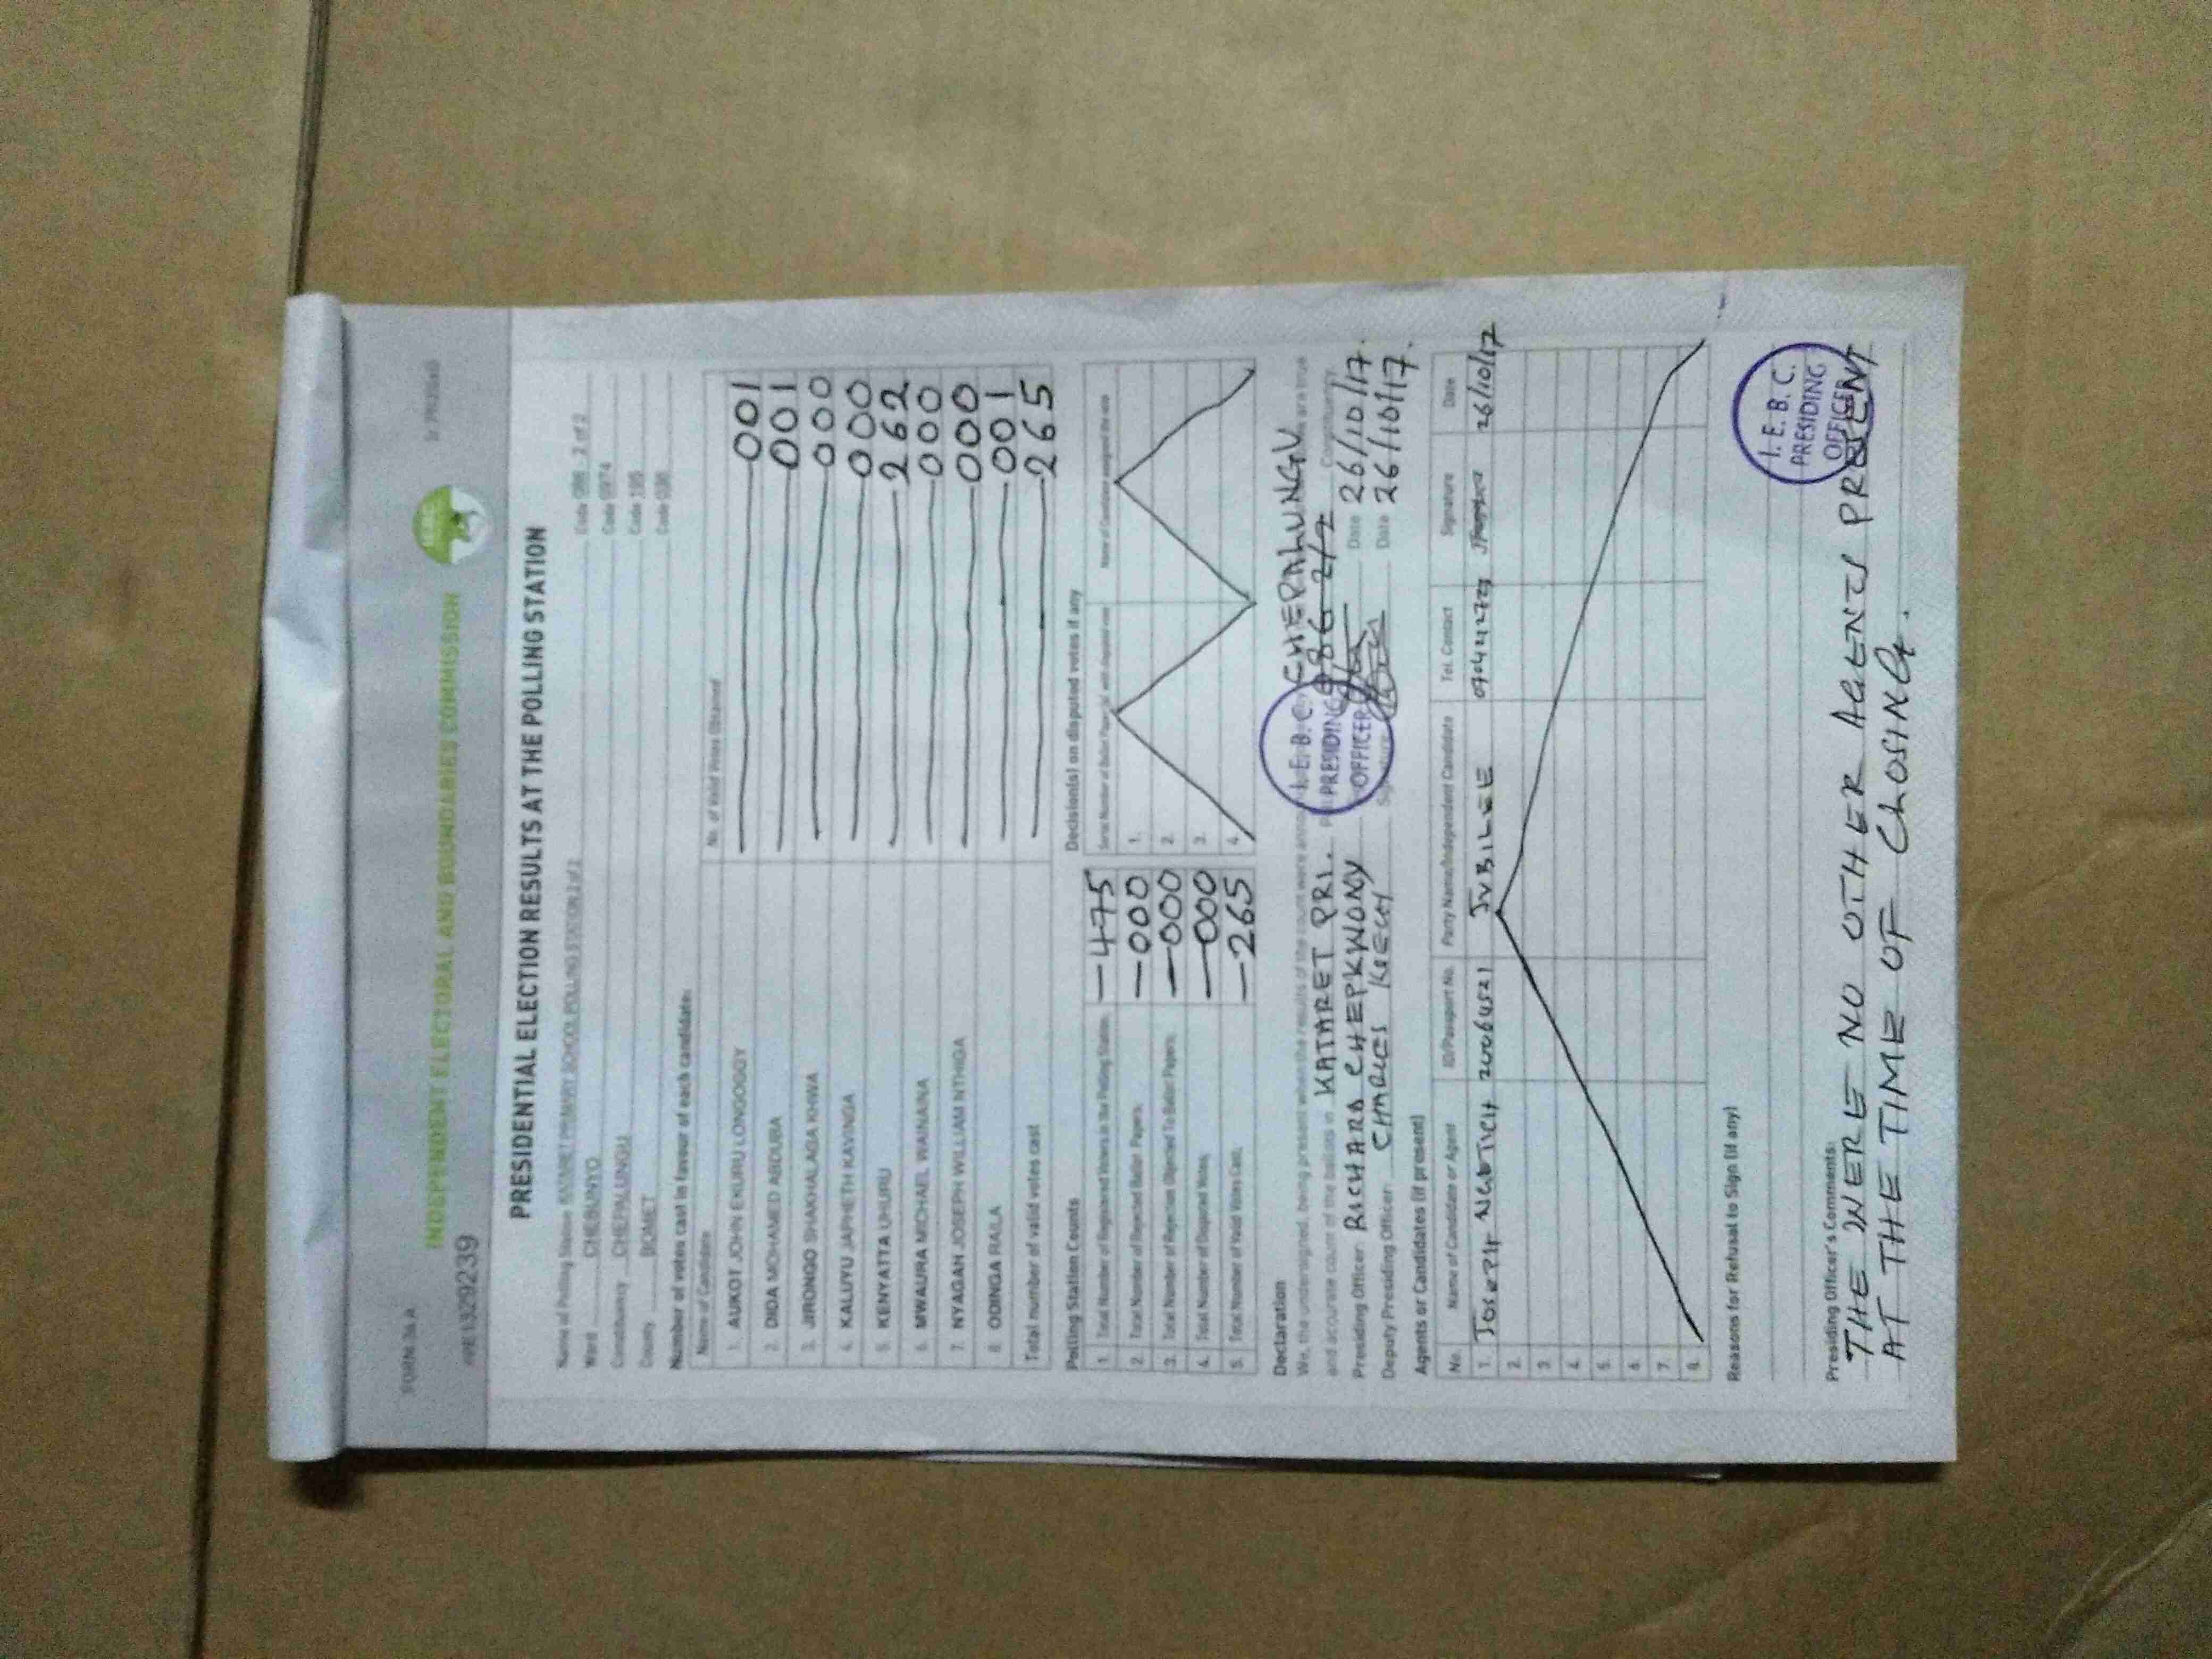 FORM 34 A
INDEPENDENT ELECTORAL AND BOUNDARIES COMMISSION
PRESIDENTIAL ELECTION RESULTS AT THE POLLING STATION
Name of Polling Station KATARET PRIMARY SCHOOL POLLING STATION 2 of 2 Code 086 2 of 2
Ward CHEBUNYO Code 0974
Constituency CHEPALUNGU Code 195
County BOMET Code 036
Number of votes cast in favour of each candidate:
Name of Candidate No. of Valid Votes Obtained
1. AUKOT JOHN EKURU LONGOGGY 001
2. DIDA MOHAMED ABDUBA 001
3. JIRONGO SHAKHALAGA KHWA 000
4. KALUYU JAPHETH KAVINGA 000
5. KENYATTA UHURU 262
6. MWAURA MICHAEL WAINAINA 000
7. NYAGAH JOSEPH WILLIAM NTHIGA 000
8. ODINGA RAILA 001
Total number of valid votes cast 265
Polling Station Counts Decision(s) on disputed votes if any
1. Total Number of Registered Voters in the Polling Station 475
2. Total Number of Rejected Ballot Papers 000 1.
3. Total Number of Rejection Objected To Ballot Papers 000 2.
4. Total Number of Disputed Votes 000 3.
5. Total Number of Valid Votes Cast 265 4.
Declaration
We, the undersigned, being present when the results of the count were CHEPALUNGU are true
and accurate count of the ballots in KATARET PRI. 086 2/2 Constituency
Presiding Officer RICHARD CHEPKWONY Date 26/10/17.
Deputy Presiding Officer: CHARLES Date 26/10/17.
I.E.B.C. PRESIDING OFFICER
Agents or Candidates (if present)
No. Name of Candidate or Agent ID/Passport No. Party Name/Independent Candidate Tel. Contact Signature Date
1. JOSEPH JUBILEE 26/10/17
2.
3.
4.
5.
6.
7.
8.
Reasons for Refusal to Sign (if any)
I.E.B.C. PRESIDING OFFICER
Presiding Officer's Comments:
THE WERE NO OTHER AGENTS PRESENT
AT THE TIME OF CLOSING.